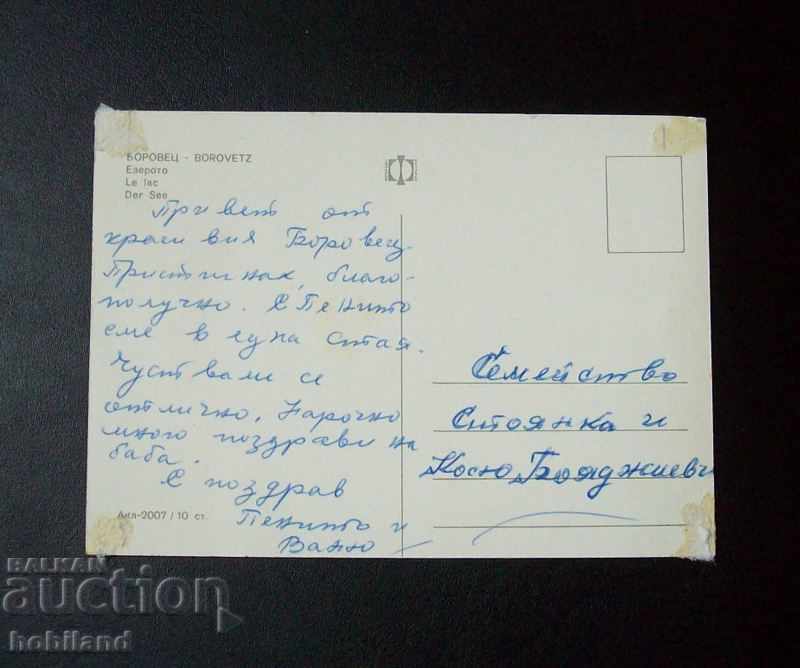 БОРОВЕЦ - BOROVETZ
Езерото
Le lac
Der See
Привет от
красивия Боровец.
Пристигнах, благо-
получно. С Пенито
сме в една стая.
Чуствали се
отлично. Нарочно
много поздрави на
баба.
С поздрав
Пенито и
Ваньо
Акл-2007 / 10 ст.
Семейство
Стоянка и
Косю Бояджиеви
BALKAN
auction
hobiland